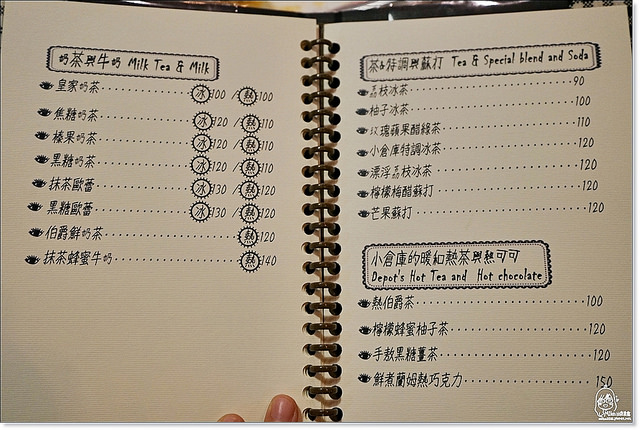 奶茶與牛奶 Milk Tea & Milk
皇家奶茶 冰100 / 熱100
焦糖奶茶 冰120 / 熱110
榛果奶茶 冰120 / 熱110
黑糖奶茶 冰120 / 熱110
抹茶歐蕾 冰130 / 熱120
黑糖歐蕾 冰130 / 熱120
伯爵鮮奶茶 熱120
抹茶蜂蜜牛奶 熱140
茶&特調與蘇打 Tea & Special blend and Soda
荔枝冰茶 90
柚子冰茶 100
玫瑰蘋果醋綠茶 110
小倉庫特調冰茶 120
漂浮荔枝冰茶 120
檸檬梅醋蘇打 120
芒果蘇打 120
小倉庫的暖和熱茶與熱可可
Depot's Hot Tea and Hot chocolate
熱伯爵茶 100
檸檬蜂蜜柚子茶 120
手敖黑糖薑茶 120
鮮煮蘭姆熱巧克力 150